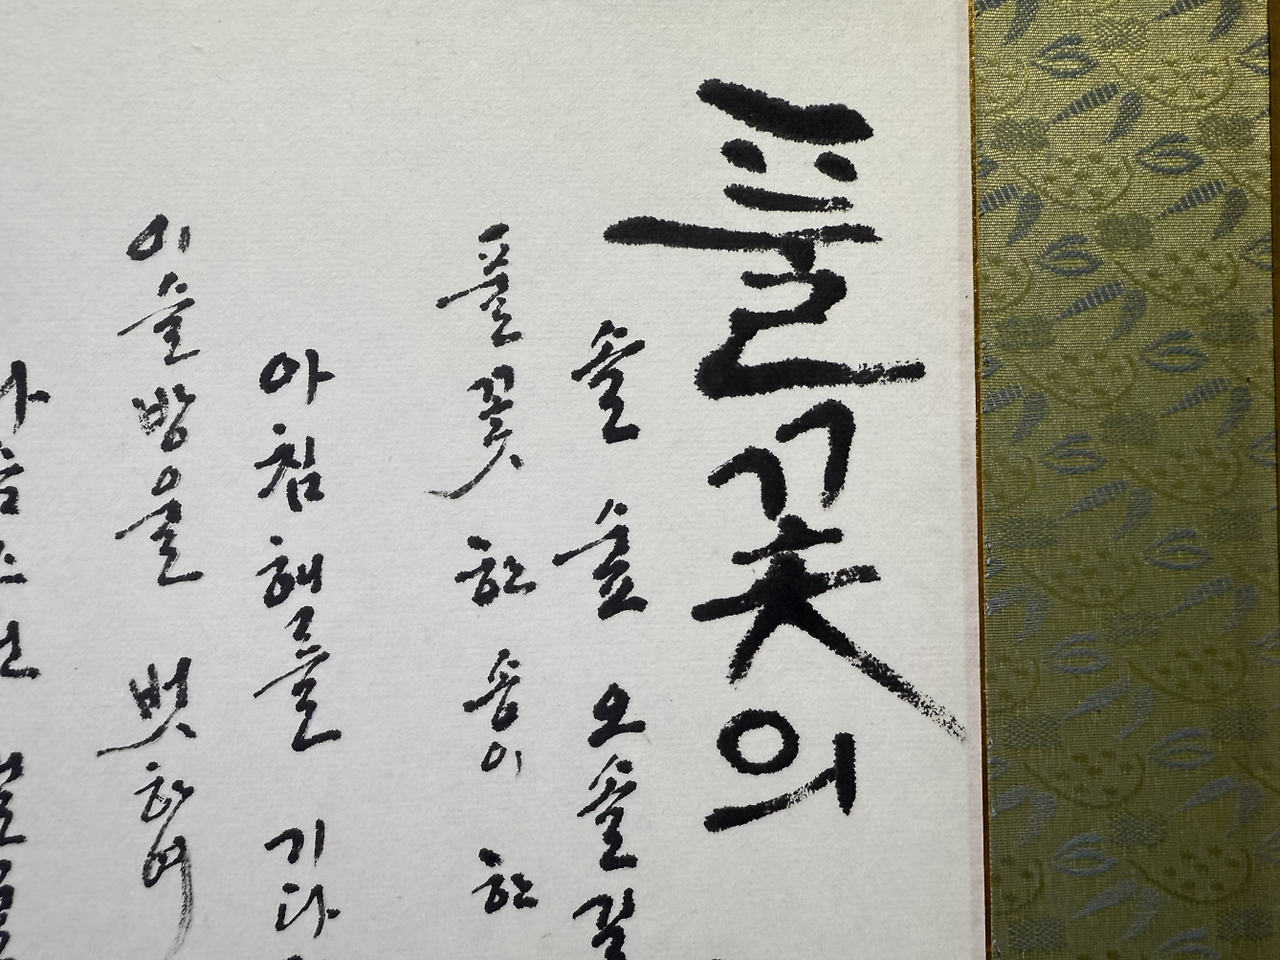 풀꽃의
솔숲 오솔길
풀꽃 한송이 한
아침해를 기다
이슬방울 벗하며